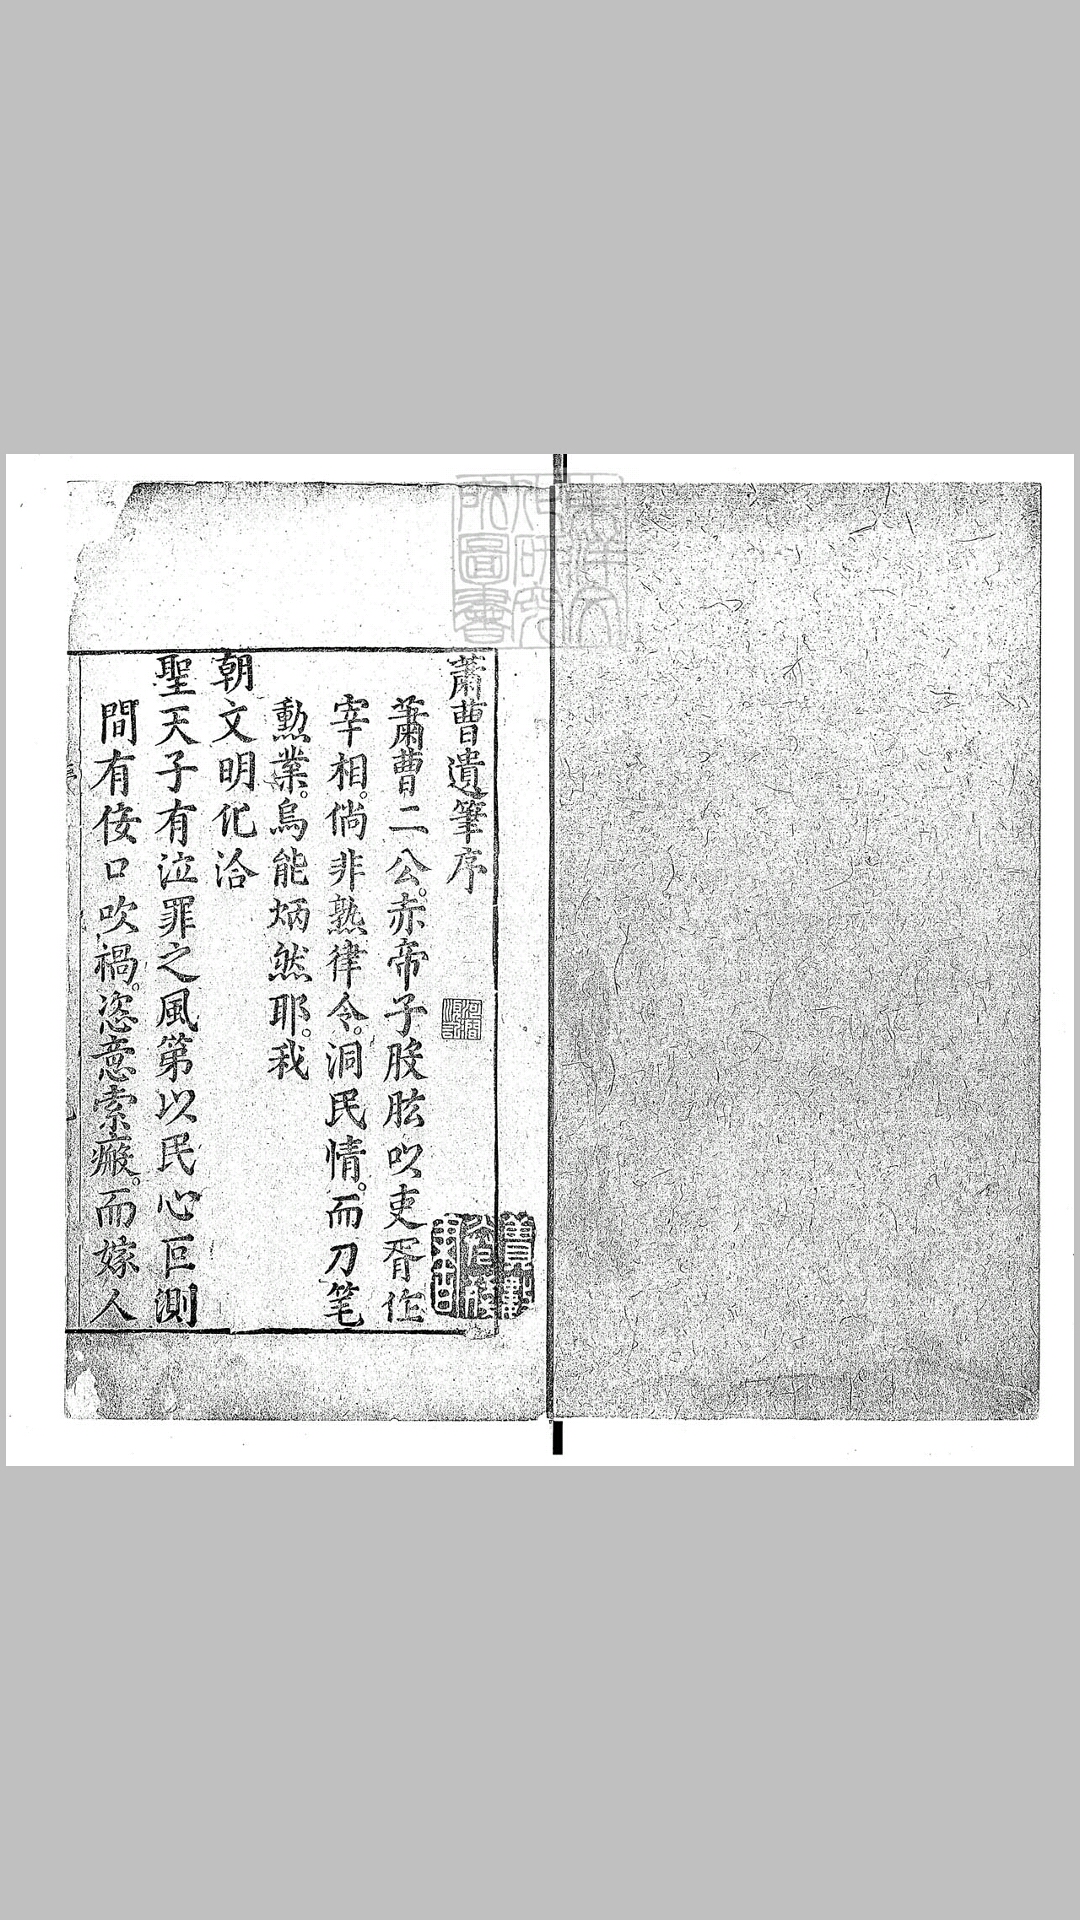 蕭曹遺筆序
蕭曹二公。赤帝子股肱以吏胥作
宰相。倘非熟律令。洞民情。而刀笔
勲業。烏能炳然耶。我
朝文明化洽
聖天子有泣罪之風第以民心叵測
間有佞口吹禍。恣意索瘢。而嫁人